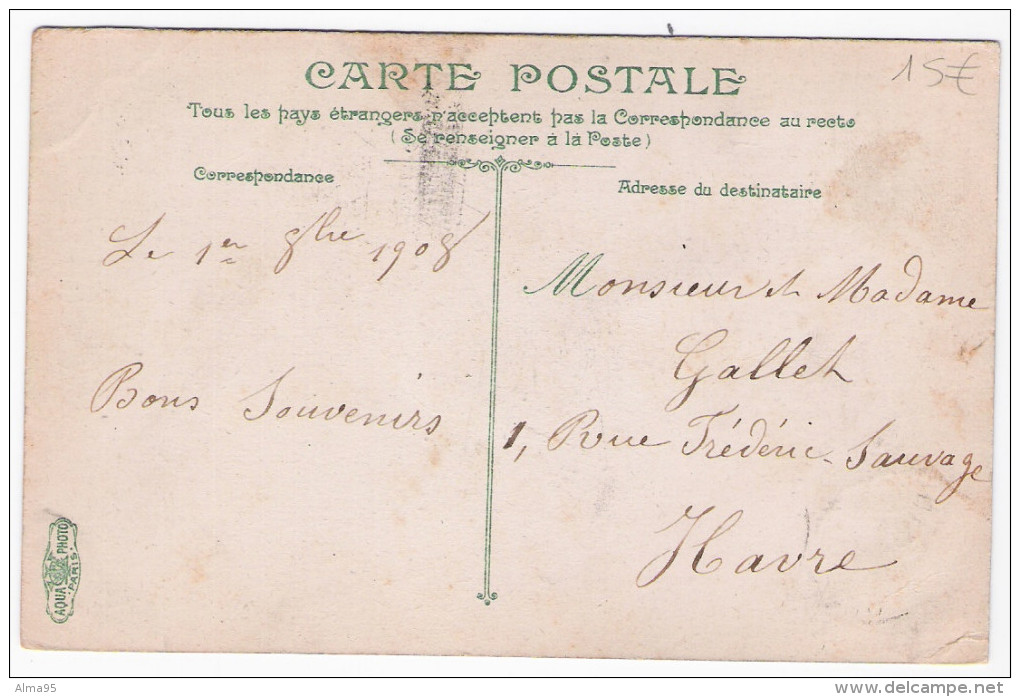 CARTE POSTALE
15€
Tous les pays étrangers n'acceptent pas la Correspondance au recto
(Se renseigner à la Poste)
Correspondance
Adresse du destinataire
Le 1er 8bre 1908
Bons Souvenirs
Monsieur et Madame
Gallet
1, Rue Frédéric-Sauvage
Havre
AQUA PHOTO
PARIS
Alma95
www.delcampe.net